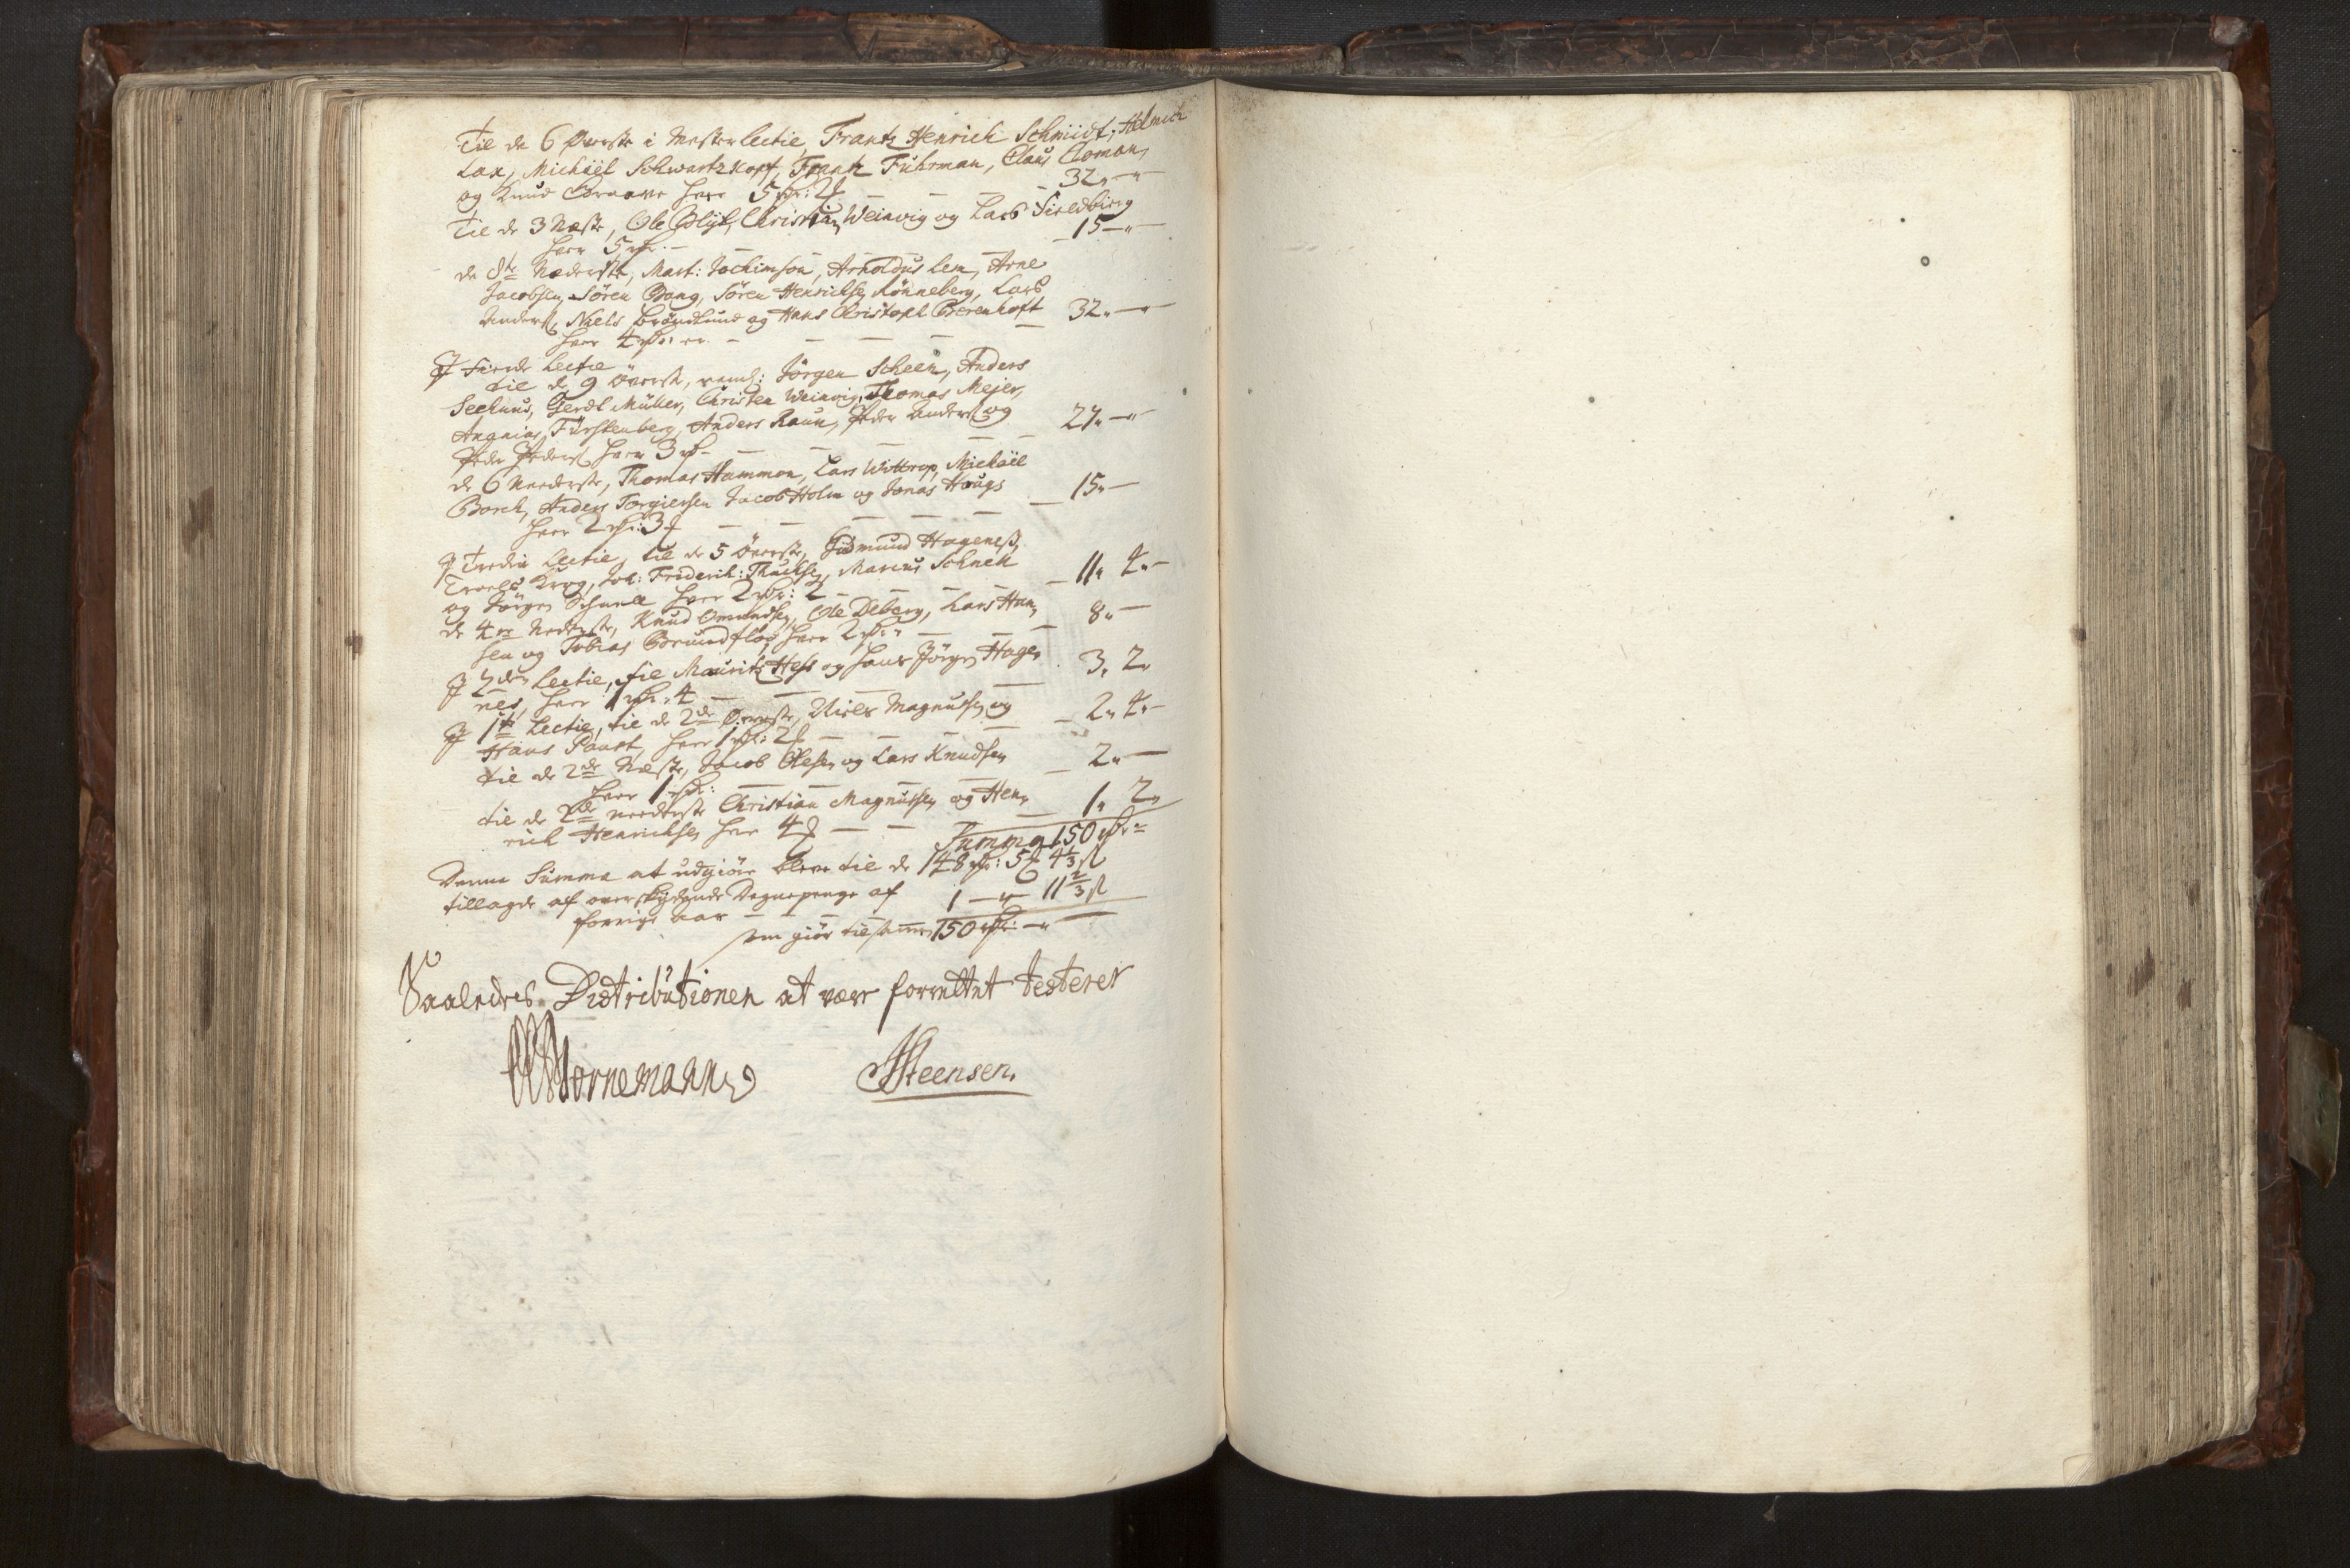 Til de 6 Øverste i Mesterlectie, Frantz Henrich Schmidt, Helmich
Lax, Michäel Schwartzkopf, Frantz Fuhrman, Claus Cloman,
og Knud hver 5 rdr: 2 ₰ — — — 32 " — "
Til de 3 Næste, Ole Blijt, Christian Weinvig og Lars
hver 5 rdr. — — — 15 — " —
de 8te Nederste, Mart: Jochimsøn, Arnoldus Lem, Arne
Jacobsen, Søren Bang, Søren Henrichsen Rønneberg, Lars
Anders, Niels og Hans Christoph Berenhoft 32 " — "
hver 4 rdr: er — — —
J Fierde Lectie
til de 9 Överste, neml: Jörgen Scheen, Anders
Seehuus, Gerdt Müller, Christen Weinvig, Thomas Mejer,
Ananias Fürstenberg, Anders Raun, Peder Anders og
Peder Peders hver 3 rd — — — 27 " — "
de 6 Nederste, Thomas Hammon, Lars Wittrop, Michäel
Borch, Anders Torgiersen Jacob Holm og Jonas Hougs
hver 2 rdr: 3 ₰ — — — 15 " —
J Tredie Lectie, til de 5 Överste, Gudmund Hagenes,
Troels Krog, Joh: Friderik: Marcus Schnell
og Jörgen Schnell hver 2 rdr: 2 — — — 11 " 4 " —
de 4re Nederste, Knud Omundsen, Ole Deberg, Lars Han,
sen og Tobias hver 2 rdr " — — 8 " —
J 2den Lectie, til Mauritz Hess og Hans Jörgen Hage,
nes, hver 1 rdr: 4 — — — 3 " 2 "
J 1te Lectie, til de 2de Øverste, Niels Magnussen og
Hans Paust, hver 1 rdr: 2 ₰ — — 2 " 4 " —
til de 2de Næste, Jacob Olesen og Lars Knudsen
hver 1 rdr: — — 2 " —
til de 2de nederste Christian Magnussen og Hen,
rich Henrichsen hver 4 ₰ — — 1 " 2 "
Summa 150 rdr "
Denne Summa at udgiöre blev til de 148 rdr: 5 ₰ 4 1/3 ß
tillagde af overskydende Degnepenge af
forrige aar — — 1 — " — 11 2/3 ß
som giör tilsamen 150 rdr: — "
Saaledes Distributionen at være forrettet testerer
Bornemann
Steensen.